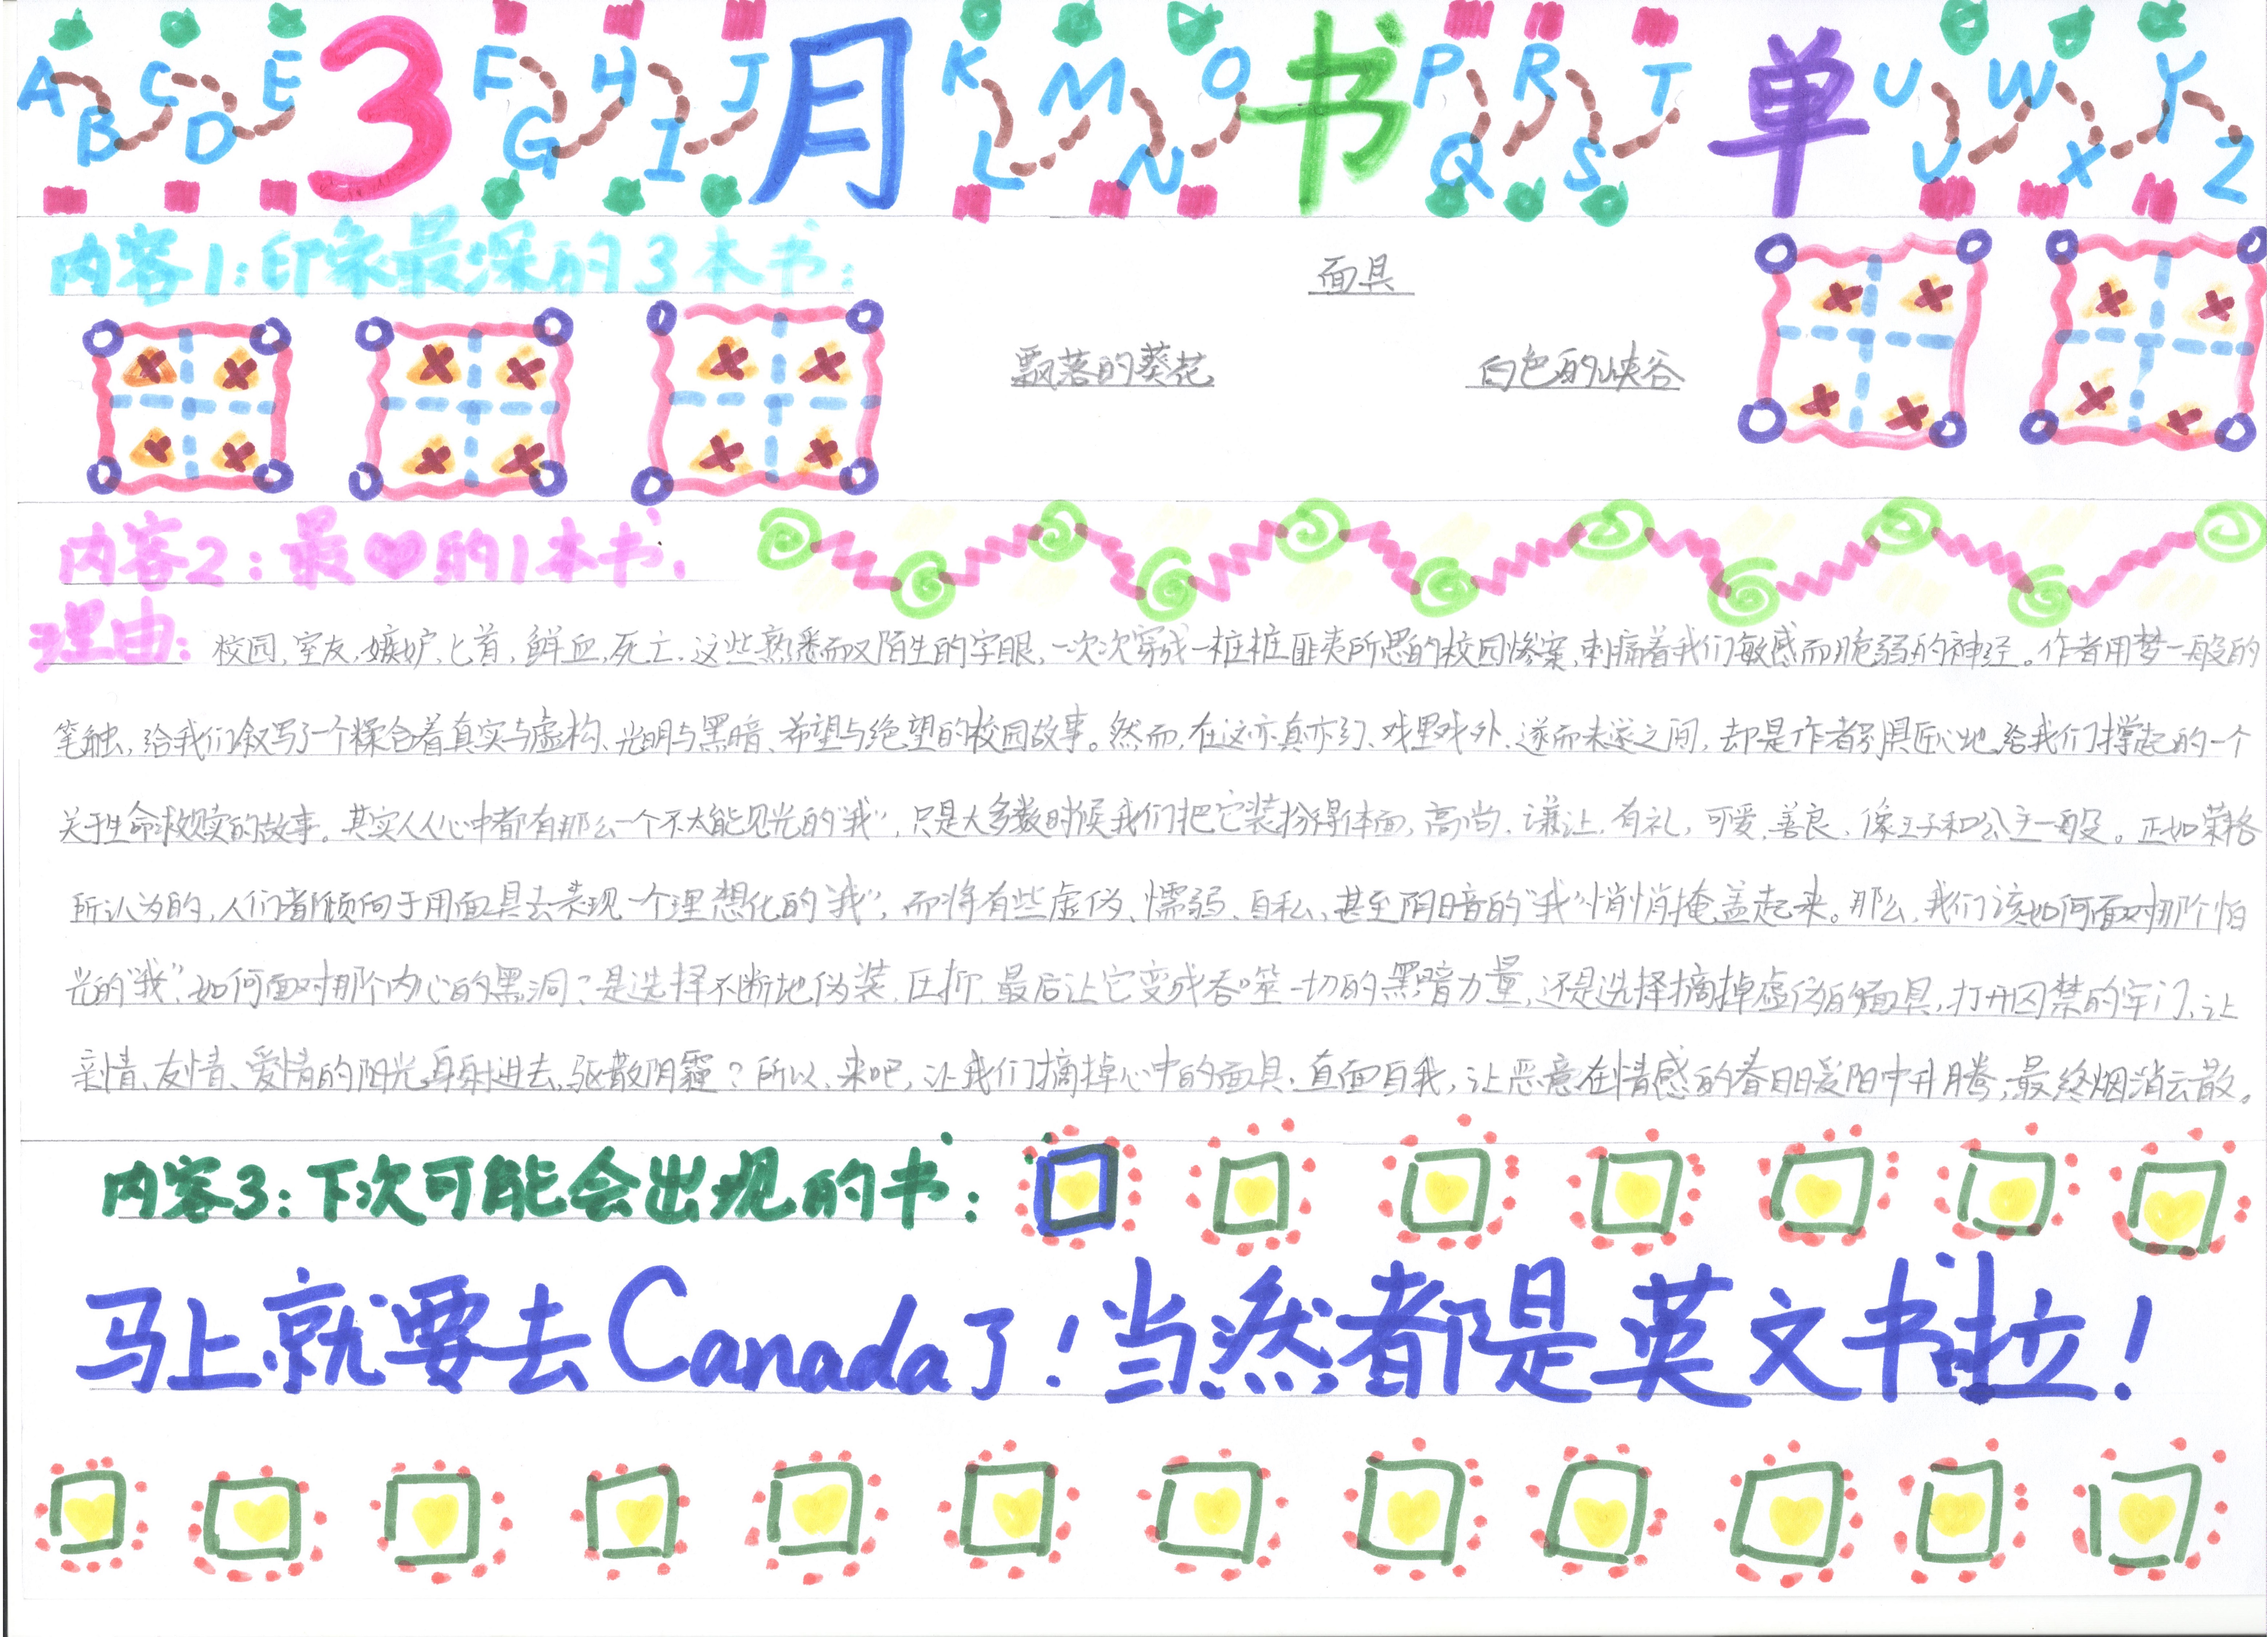 A B C D E 3 F G H I J 月 K L M N O 书 P Q R S T 单 U V W X Y Z
内容1:印象最深的3本书:
面具
飘落的葵花 白色的峡谷
内容2:最♥的1本书.
理由: 校园,室友,嫉妒,匕首,鲜血,死亡.这些熟悉而又陌生的字眼,一次次穿成一桩桩匪夷所思的校园惨案,刺痛着我们敏感而脆弱的神经。作者用梦一般的
笔触,给我们叙写了一个糅合着真实与虚构、光明与黑暗、希望与绝望的校园故事。然而,在这亦真亦幻、戏里戏外、遂而未遂之间,却是作者别具匠心地给我们撑起的一个
关于生命救赎的故事。其实人人心中都有那么一个不太能见光的“我”,只是大多数时候我们把它装扮得体面,高尚,谦让,有礼,可爱,善良,像王子和公主一般。正如荣格
所认为的,人们都倾向于用面具去表现一个理想化的“我”,而将有些虚伪、懦弱、自私、甚至阴暗的“我”悄悄掩盖起来。那么,我们该如何面对那个怕
光的“我”,如何面对那个内心的黑洞?是选择不断地伪装,压抑,最后让它变成吞噬一切的黑暗力量,还是选择摘掉虚伪的面具,打开囚禁的牢门,让
亲情、友情、爱情的阳光身射进去,驱散阴霾?所以,来吧,让我们摘掉心中的面具,直面自我,让恶意在情感的春日暖阳中升腾,最终烟消云散。
内容3:下次可能会出现的书:
马上就要去Canada了!当然都是英文书啦!